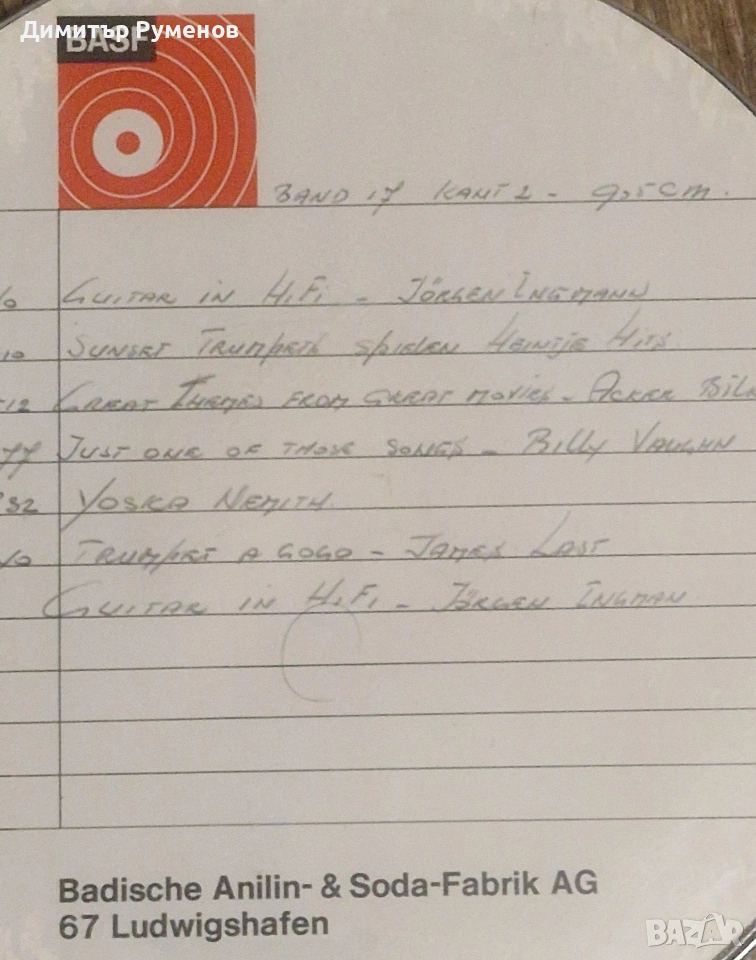 Димитър Руменов
BASF
BAND 17 KANT 2 - 9,5 CM.
GUITAR IN HIFI - JÖRGEN INGMANN
10 SUNSET TRUMPETS SPIELEN HEINTJE HITS
12 GREAT THEMES FROM GREAT MOVIES - ACKER BILK
77 JUST ONE OF THOSE SONGS - BILLY VAUGHN
32 YOSKA NEMITH
TRUMPET A GOGO - JAMES LAST
GUITAR IN HIFI - JÖRGEN INGMAN
Badische Anilin- & Soda-Fabrik AG
67 Ludwigshafen
BAZAR